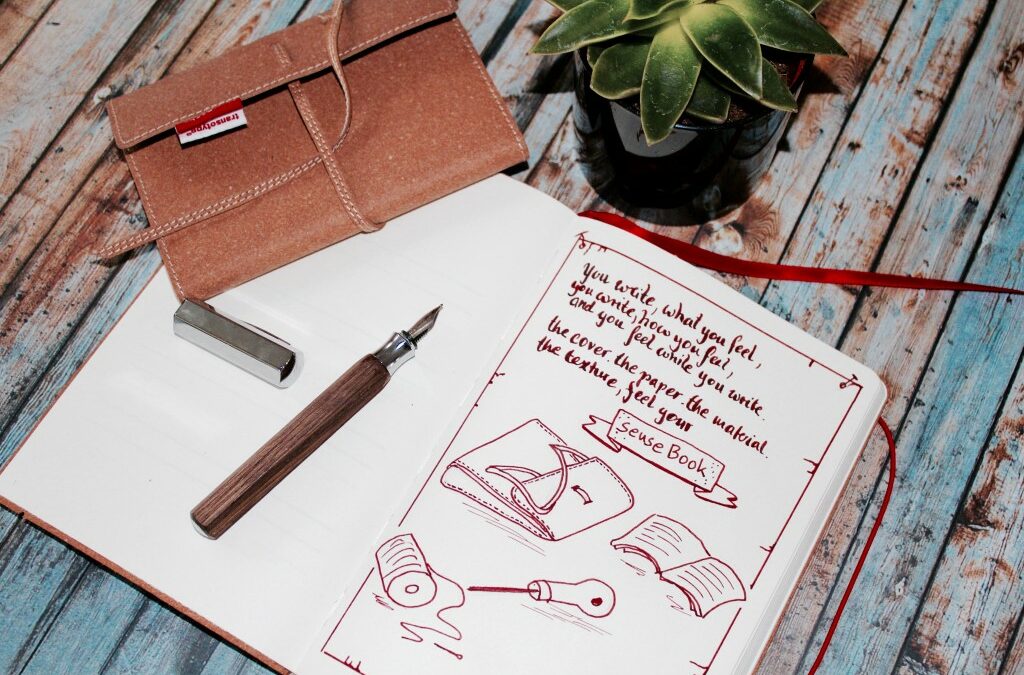 transotype
You write, what you feel,
you write, how you feel,
and you feel while you write.
the cover. the paper. the material.
the texture, feel your
sense Book